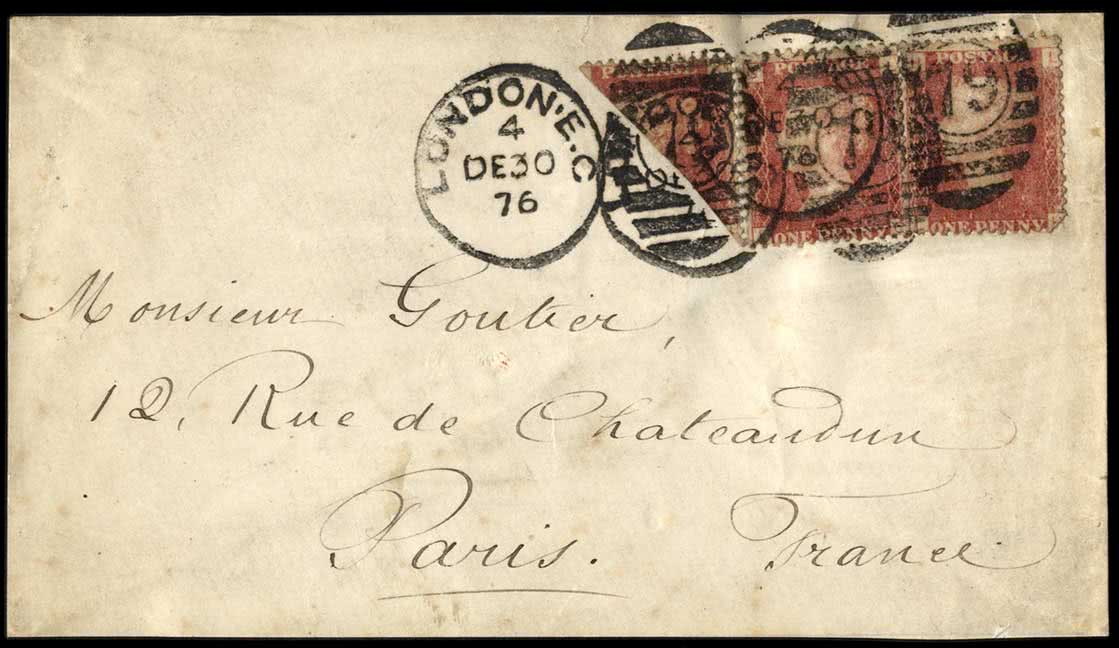 LONDON·E.C
4
DE30
76
POSTAGE
POSTAGE
DE30
76
19
ONE PENNY
ONE PENNY
Monsieur Goutier,
12, Rue de Chateaudun
Paris. France.